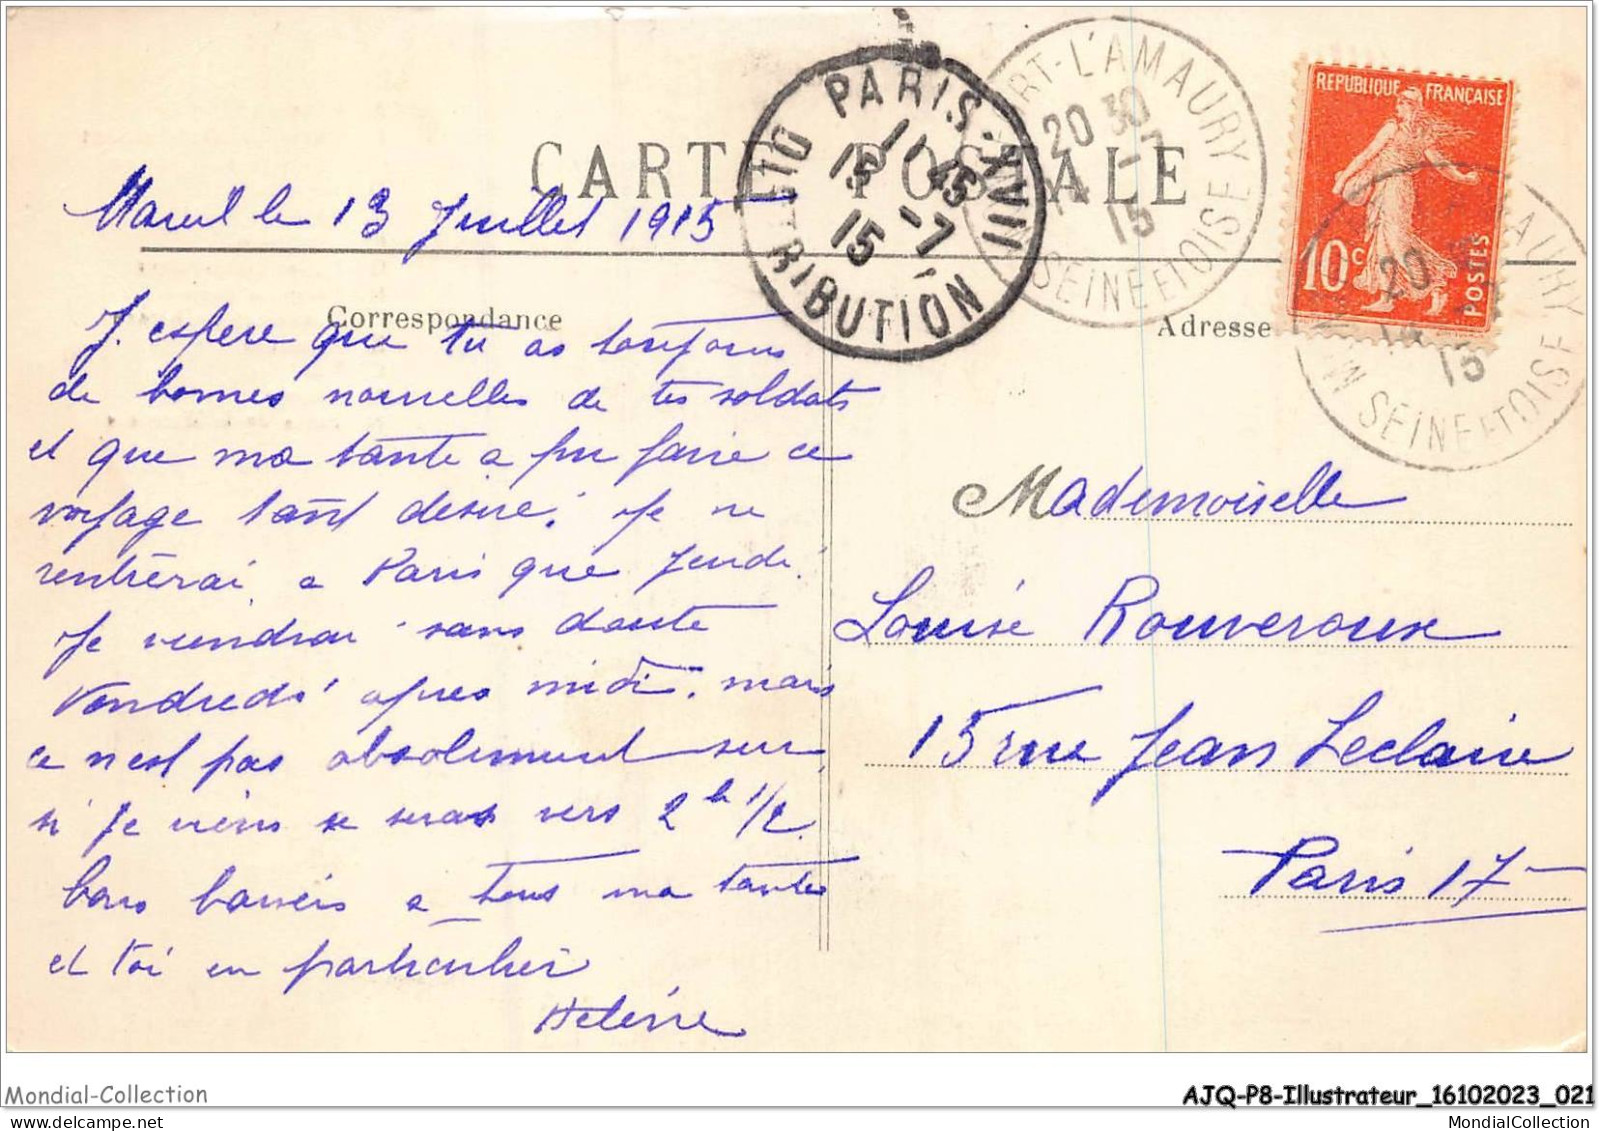 CARTE POSTALE
PARIS XVII
DISTRIBUTION
11 45
15 -7
15
MONTFORT-L'AMAURY
20 30
14 -7
15
SEINE ET OISE
REPUBLIQUE FRANÇAISE
10c
POSTES
AURY
20
14
15
SEINE ET OISE
Mareil le 13 Juillet 1915
Correspondance
J. espere que tu as toujours
de bonnes nouvelles de tes soldats
et que ma tante a pu faire ce
voyage tant désiré. Je ne
rentrerai a Paris que Jeudi.
Je viendrai sans doute
Vendredi apres midi. mais
ce n'est pas absolument sur
si je viens ce serais vers 2h 1/2.
bons baisers a tous ma tante
et toi en particulier
Hélène
Adresse
Mademoiselle
Louise Rouveroux
15 rue Jean Leclaire
Paris 17
Mondial-Collection
AJQ-P8-Illustrateur_16102023_021
MondialCollection